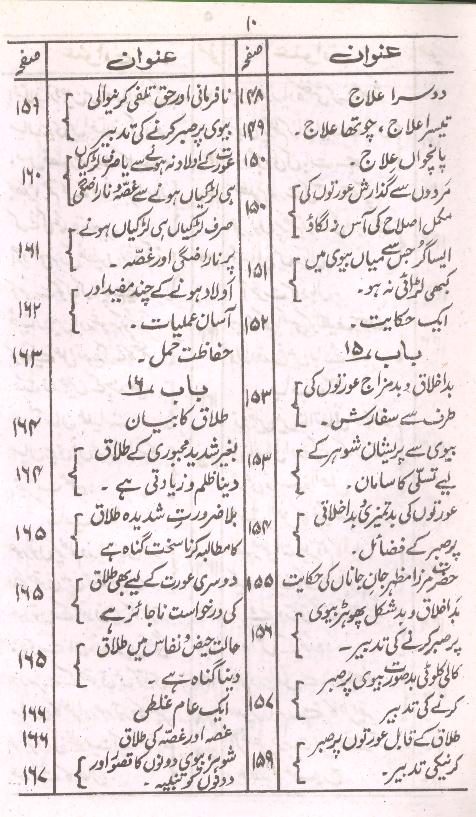 ۱۰
عنوان صفحہ
دوسرا علاج ۱۴۸
تیسرا علاج ، چوتھا علاج ۔ ۱۴۹
پانچواں علاج ۔ ۱۵۰
مردوں سے گذارش عورتوں کی
مکمل اصلاح کی آس نہ لگاؤ ۱۵۰
ایسا گر جس سے میاں بیوی میں
کبھی لڑائی نہ ہو ۔ ۱۵۱
ایک حکایت ۔ ۱۵۲
باب ۱۵
بداخلاق و بدمزاج عورتوں کی
طرف سے سفارش ۔ ۱۵۳
بیوی سے پریشان شوہر کے
لیے تسلی کا سامان ۔ ۱۵۳
عورتوں کی بدتمیزی بداخلاقی
پر صبر کے فضائل ۔ ۱۵۴
حضرت مرزا مظہر جان جاناں کی حکایت ۱۵۵
بداخلاق و بدشکل پھوہڑ بیوی
پر صبر کرنے کی تدبیر ۔ ۱۵۶
کالی کلوٹی بدصورت بیوی پر صبر
کرنے کی تدبیر ۱۵۷
طلاق کے قابل عورتوں پر صبر
کرنیکی تدبیر ۔ ۱۵۹
عنوان صفحہ
نافرمانی اور حق تلفی کرنیوالی
بیوی پر صبر کرنے کی تدبیر ۱۵۹
عورت کے اولاد نہ ہونے سے یا صرف لڑکیاں
ہی لڑکیاں ہونے سے غصہ و ناراضگی ۱۶۰
صرف لڑکیاں ہی لڑکیاں ہونے
پر ناراضگی اور غصہ ۔ ۱۶۱
اولاد ہونے کے چند مفید اور
آسان عملیات ۔ ۱۶۲
حفاظت حمل ۔ ۱۶۳
باب ۱۶
طلاق کا بیان ۱۶۴
بغیر شدید مجبوری کے طلاق
دینا ظلم و زیادتی ہے ۔ ۱۶۴
بلا ضرورت شدیدہ طلاق
کا مطالبہ کرنا سخت گناہ ہے ۱۶۵
دوسری عورت کے لیے بھی طلاق
کی درخواست ناجائز ہے ۱۶۵
حالت حیض و نفاس میں طلاق
دینا گناہ ہے ۔ ۱۶۵
ایک عام غلطی ۱۶۶
غصہ اور غصہ کی طلاق ۱۶۶
شوہر بیوی دونوں کا قصور اور
دونوں کو تنبیہ ۔ ۱۶۷